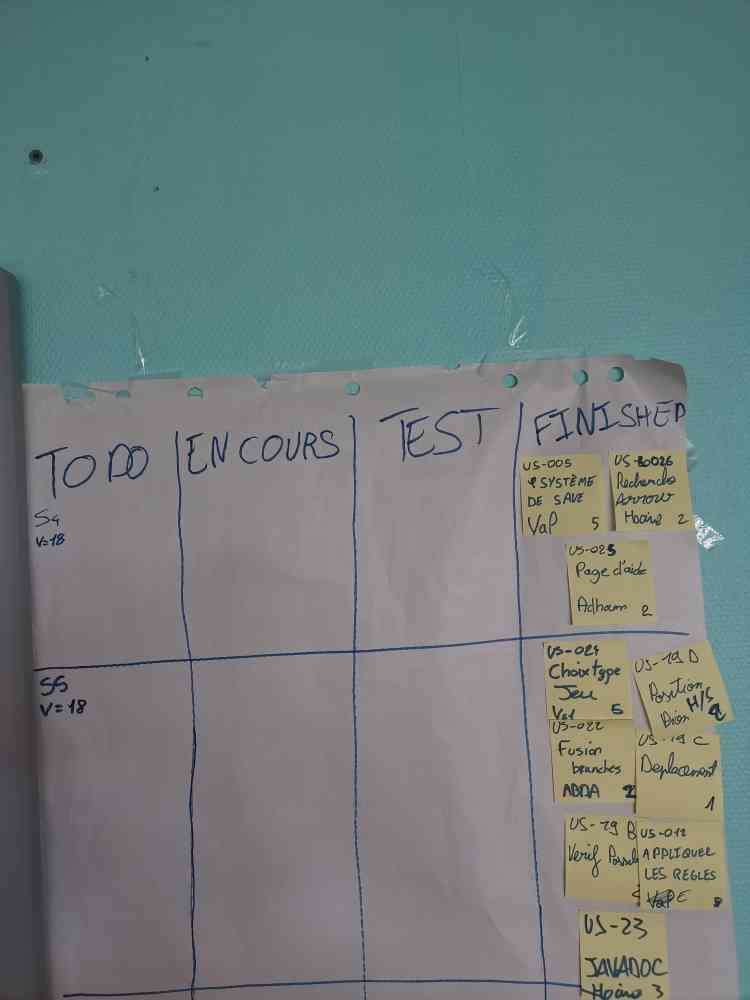 TO DO
EN COURS
TEST
FINISHED
S4
V=18
US-005
SYSTÈME
DE SAVE
Val 5
Recherche
Arrow
2
US-025
Page d'aide
Adham 2
S5
V=18
US-024
Choix type
Jeu
Val 5
US-19 D
Position
H/S
US-022
Fusion
branches
ABDA 2
US-19 C
Deplacement
1
US-19 B
Verif
US-012
APPLIQUER
LES REGLES
US-23
JAVADOC
3